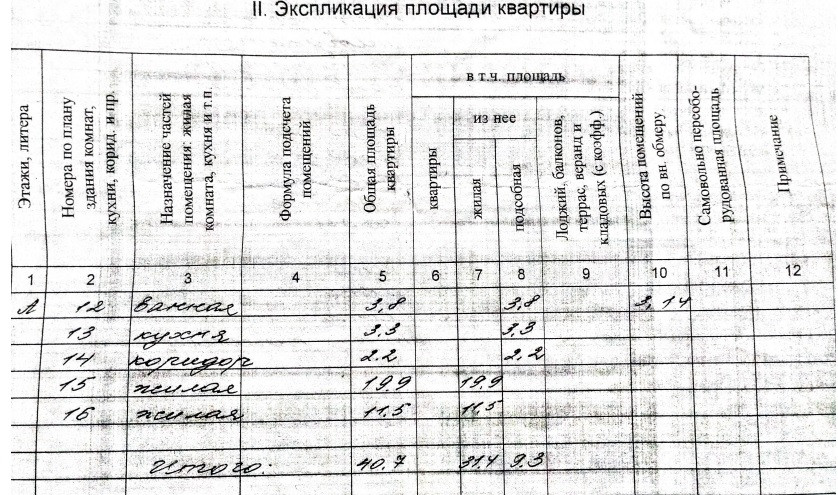 II. Экспликация площади квартиры
Этажи, литера
Номера по плану здания комнат, кухни, корид. и пр.
Назначение частей помещения: жилая комната, кухня и т.п.
Формула подсчета помещений
Общая площадь квартиры
в т.ч. площадь
квартиры
из нее
жилая
подсобная
Лоджий, балконов, террас, веранд и кладовых (с коэфф.)
Высота помещений по вн. обмеру
Самовольно переобо- рудованная площадь
Примечание
1 2 3 4 5 6 7 8 9 10 11 12
А 12 ванная 3,8 3,8 3,14
13 кухня 3,3 3,3
14 коридор 2.2 2,2
15 жилая 19,9 19,9
16 жилая 11,5 11,5
Итого. 40.7 31,4 9.3